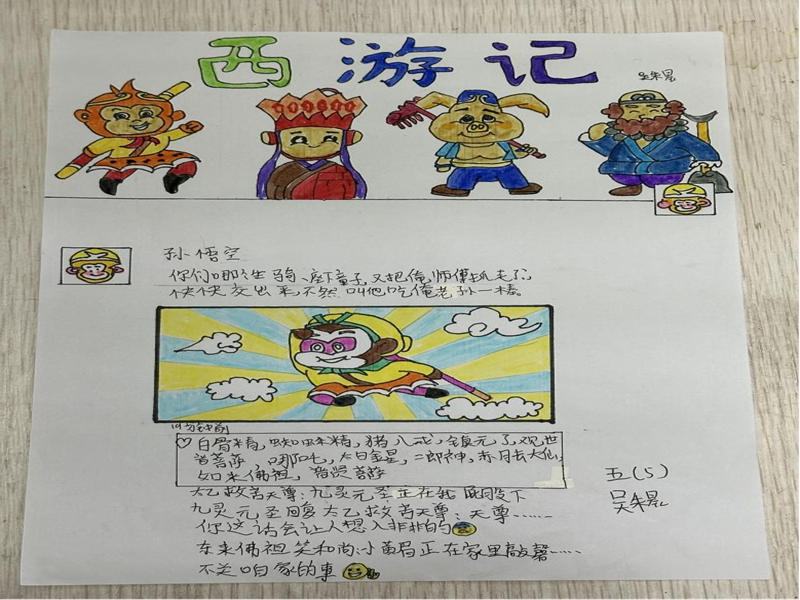 西游记
吴朱景
孙悟空
你们哪个坐骑、座下童子又把俺师傅抓走了,
快快交出来,不然叫他吃俺老孙一棒。
19分钟前
♡白骨精,蜘蛛精,猪八戒,镇元子,观世
音菩萨,哪吒,太白金星,二郎神,赤脚大仙,
如来佛祖,普贤菩萨
太乙救苦天尊:九灵元圣正在我屁股下
九灵元圣回复太乙救苦天尊:天尊……
你这话会让人想入非非的
东来佛祖笑和尚:小黄眉正在家里敲磬……
不关咱家的事
五(5)
吴朱景